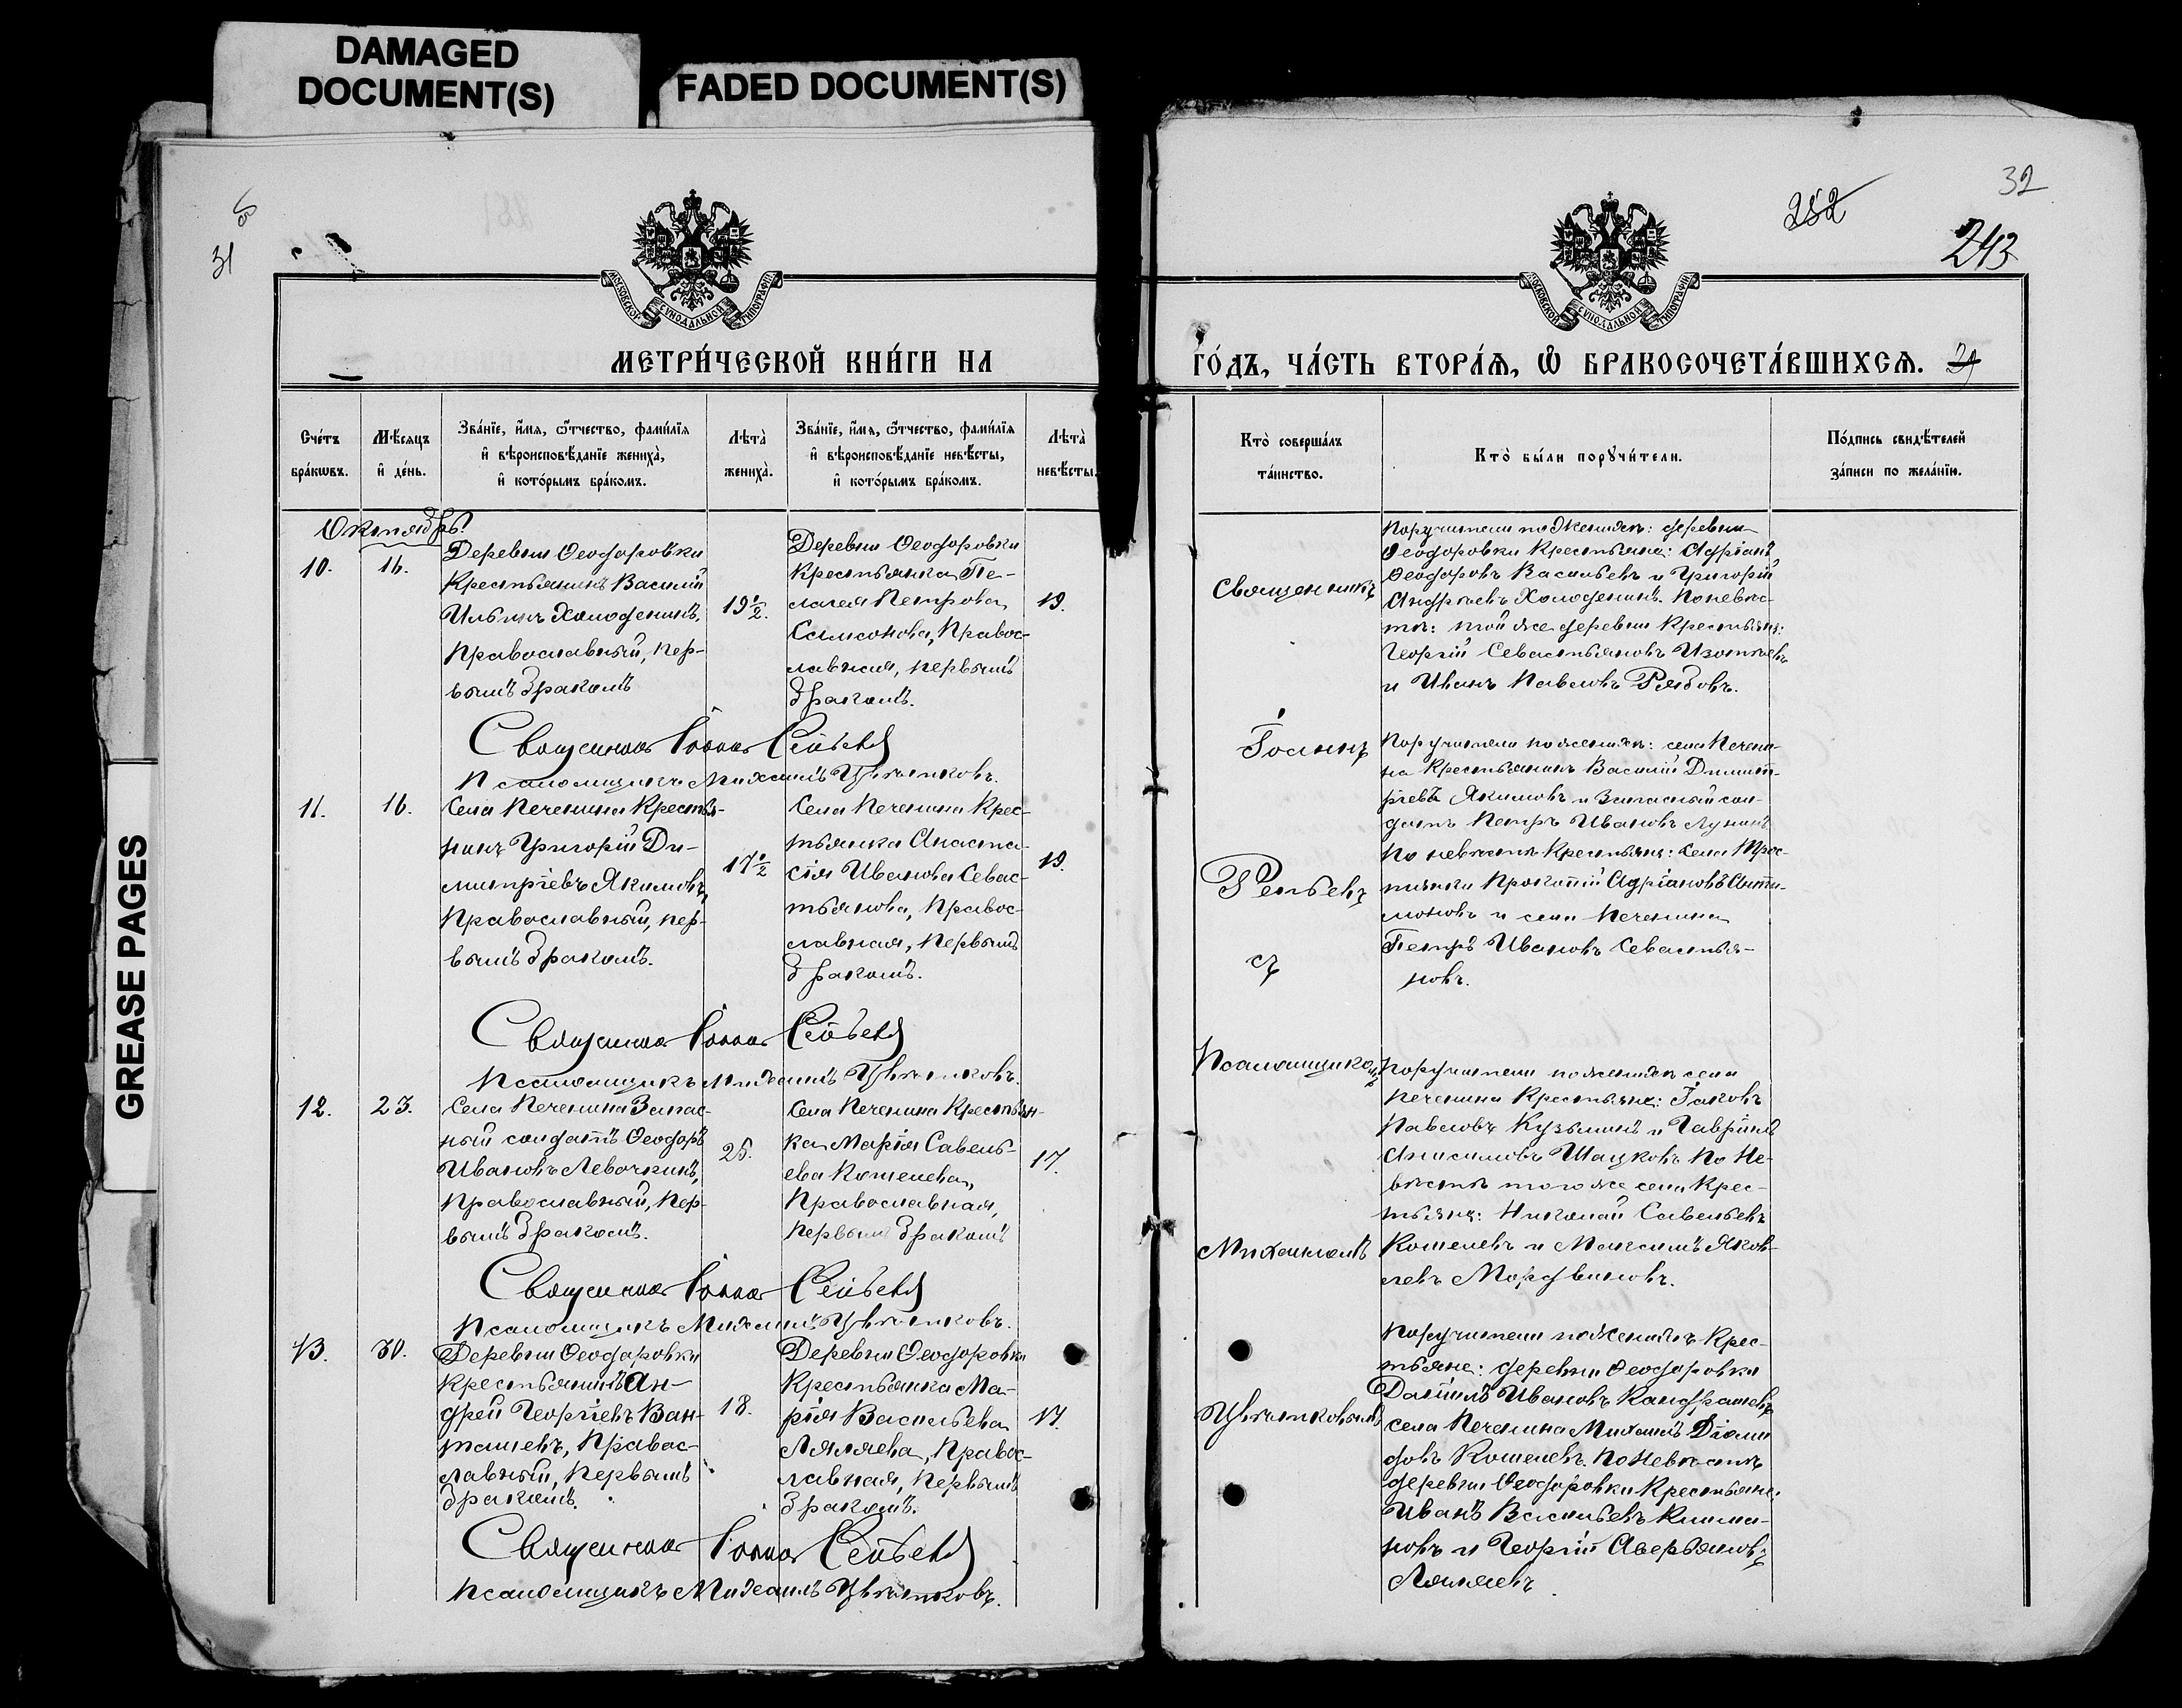 DAMAGED
DOCUMENT(S)
FADED DOCUMENT(S)
GREASE PAGES
31
МОСКОВСКОЙ СУНОДАЛЬНОЙ ТИПОГРАФІИ
МЕТРИ́ЧЕСКОЙ КНИ́ГИ НА
Сче́тъ
бра́кѡвъ.
Мѣ́сѧцъ
и҆ де́нь.
Зва́нїе, и҆́мѧ, ѻ҆́тчество, фами́лїѧ
и҆ вѣроисповѣ́данїе жениха̀,
и҆ кото́рымъ бра́комъ.
Лѣта̀
жениха̀.
Зва́нїе, и҆́мѧ, ѻ҆́тчество, фами́лїѧ
и҆ вѣроисповѣ́данїе невѣ́сты,
и҆ кото́рымъ бра́комъ.
Лѣта̀
невѣ́сты.
Октябрь.
10.
16.
Деревни Ѳеодоровки
Крестьянинъ Василій
Ильинъ Холоденинъ,
Православный, пер-
вымъ бракомъ
19½.
Деревни Ѳеодоровки
Крестьянка Пе-
лагея Петрова
Самсонова, Правос-
лавная, первымъ
бракомъ.
19.
Священникъ Іоаннъ
Псаломщикъ Михаилъ Цвѣтковъ.
11.
16.
Села Печенина Крестья-
нинъ Григорій Ди-
митріевъ Якимовъ,
Православный, пер-
вымъ бракомъ.
17½
Села Печенина Крес-
тьянка Анаста-
сія Иванова Севас-
тьянова, Правос-
лавная, первымъ
бракомъ.
19.
Священникъ Іоаннъ
Псаломщикъ Михаилъ Цвѣтковъ.
12.
23.
Села Печенина Запас-
ный солдатъ Ѳеодоръ
Ивановъ Левочкинъ,
Православный, пер-
вымъ бракомъ.
25.
Села Печенина Крестьян-
ка Марія Савель-
ева Кошелева,
Православная,
первымъ бракомъ
17.
Священникъ Іоаннъ
Псаломщикъ Михаилъ Цвѣтковъ.
13.
30.
Деревни Ѳеодоровки
Крестьянинъ Ан-
дрей Георгіевъ
Правос-
лавный, первымъ
бракомъ.
18.
Деревни Ѳеодоровки
Крестьянка Ма-
рія Васильева
Ляляева, Правос-
лавная, первымъ
бракомъ.
17.
Священникъ Іоаннъ
Псаломщикъ Михаилъ Цвѣтковъ.
32
252
243
МОСКОВСКОЙ СУНОДАЛЬНОЙ ТИПОГРАФІИ
ГО́ДЪ, ЧА́СТЬ ВТОРА́Ѧ, Ѽ БРАКОСОЧЕТА́ВШИХСѦ.
Кто̀ соверша́лъ
та́инство.
Кто̀ бы́ли порꙋчи́тели.
По́дпись свидѣ́телей
за́писи по жела́нїю.
Священникъ
Іоаннъ
съ
Псаломщикомъ
Михаиломъ
Цвѣтковымъ
Поручители по женихѣ: деревни
Ѳеодоровки Крестьяне: Адріанъ
Ѳеодоровъ Васильевъ и Григорій
Андреевъ Холоденинъ. По невѣс-
тѣ: той же деревни Крестьяне:
Георгій Севастьяновъ Изотьевъ
и Иванъ Павловъ Рябовъ.
Поручители по женихѣ: села Печени-
на Крестьянинъ Василій Димит-
ріевъ Якимовъ и Запасный сол-
датъ Петръ Ивановъ Лунинъ
По невѣстѣ Крестьяне: села Трос-
тянки Прокопій Адріановъ
и села Печенина
Петръ Ивановъ Севастья-
новъ.
Поручители по женихѣ села
Печенина Крестьяне: Іаковъ
Павловъ Кузьминъ и Гавріилъ
Анисимовъ Шацковъ По Не-
вѣстѣ того же села Крес-
тьяне: Николай Савельевъ
Кошелевъ и Максимъ Яков-
левъ Мордвиновъ.
Поручители по женихѣ Крес-
тьяне: деревни Ѳеодоровки
Даніилъ Ивановъ
села Печенина Михаилъ Діоми-
довъ Кошелевъ. По Невѣстѣ
деревни Ѳеодоровки Крестьяне:
Иванъ Васильевъ
и Георгій Аверьяновъ
Ляляевъ